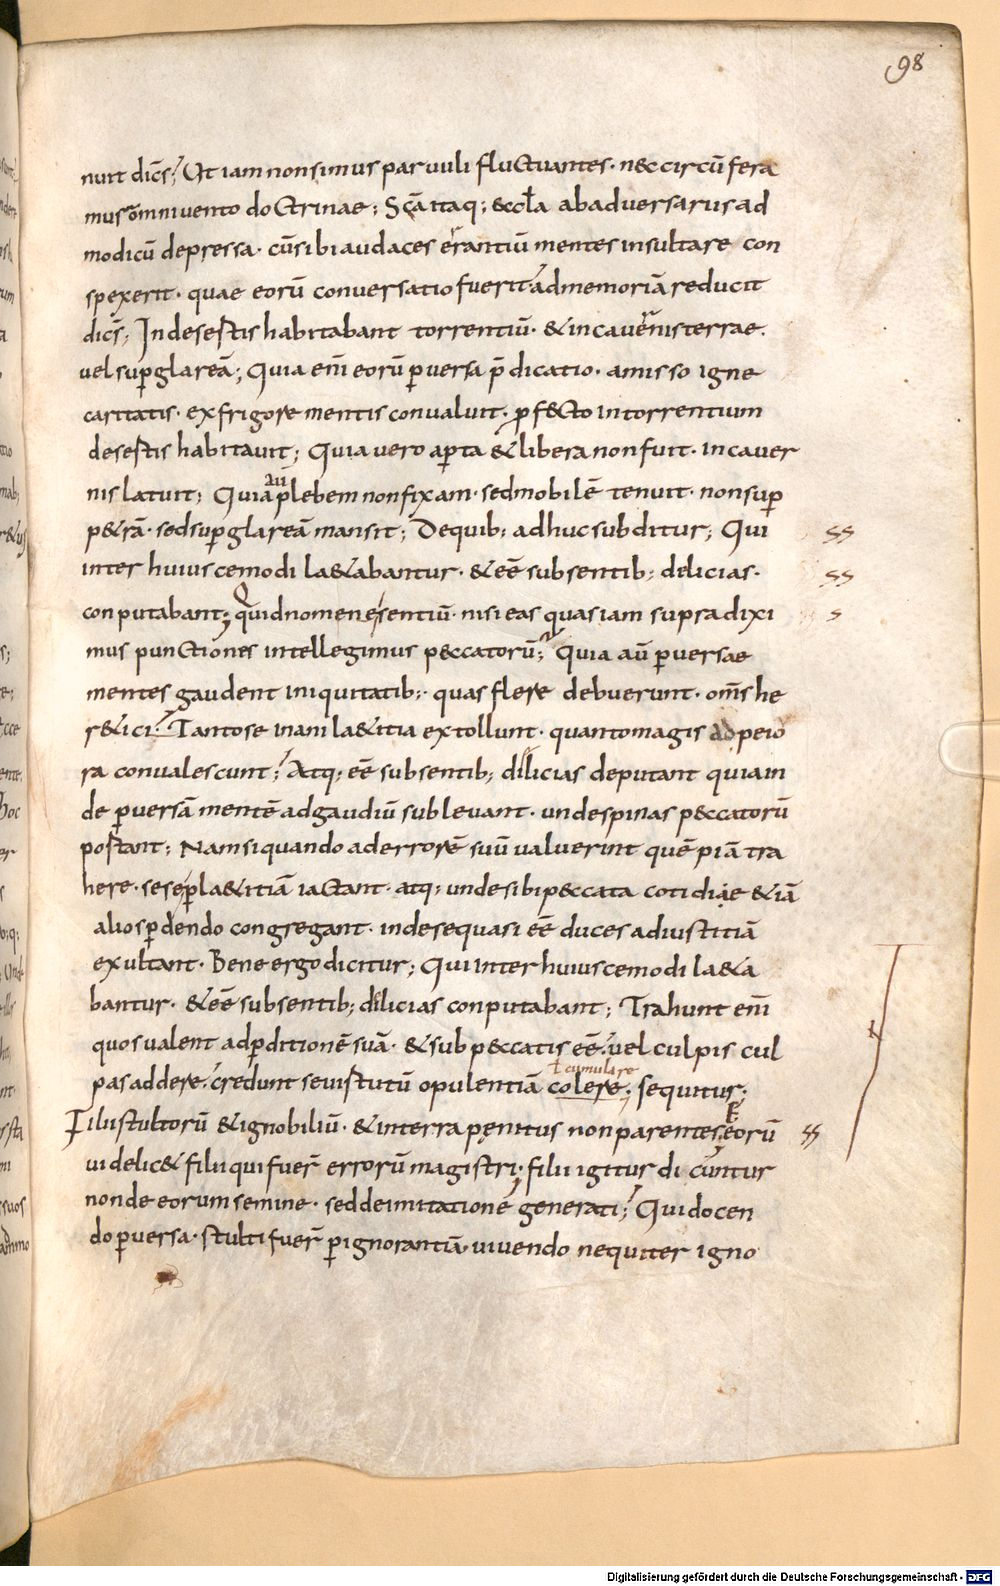 98
nuit dic̄s; Ut iam non simus paruuli fluctuantes · nec circū fera
mus ōmni uento doctrinae; Sc̄a itaq; &ccl̄a ab aduersariis ad
modicū depressa · cū sibi audaces errantiū mentes insultare con
spexerit · quae eorū conuersatio fuerit ad memoriā reducit
dic̄s; In desertis habitabant torrentiū · & in cauernis terrae ·
uel sup̱ glareā; Quia enī eorū p̱uersa p̄dicatio · amisso igne
caritatis · ex frigore mentis conualuit · p̱fecto in torrentium
desertis habitauit; Quia uero ap̱ta & libera non fuit · in cauer
nis latuit; Quia au plebem non fixam · sed mobilē tenuit · non sup̱
p&rā · sed sup̱ glareā mansit; De quib; adhuc subditur; Qui
inter huiuscemodi la&abantur · & eē sub sentib; delicias ·
conputabant; Quid nomine sentiū · nisi eas quas iam supra dixi
mus punctiones intellegimus peccatorū; Quia aū p̱uersae
mentes gaudent iniquitatib; · quas flere debuerunt · om̄s he
r&ici · Tanto se inani la&itia extollunt · quanto magis ad peio
ra conualescunt; Atq; eē sub sentib; dilicias deputant quia in
de p̱uersā mentē ad gaudiū subleuant · unde spinas peccatorū
portant; Nam si quando ad errorē suū ualuerint quēpiā tra
here · sese p̱ la&itiā iactant · atq; unde sibi peccata cotidiae &iā
alios p̱dendo congregant · inde se quasi eē duces ad iustitiā
exultant · Bene ergo dicitur; Qui inter huiuscemodi la&a
bantur · & eē sub sentib; dilicias conputabant; Trahunt enī
quos ualent ad p̱ditionē suā · & sub peccatis eē · uel culpis cul
pas addere · credunt se uirtutū opulentiā colere; sequitur;
ł cumulare
Filii stultorū & ignobiliū · & in terra penitus non parentes; Eorū
uidelic& filii qui fuer̄ errorū magistri; filii igitur dicuntur
non de eorum semine · sed de imitatione generati; Qui docen
do p̱uersa · stulti fuer̄ p̱ ignorantiā · uiuendo nequiter igno
Digitalisierung gefördert durch die Deutsche Forschungsgemeinschaft - DFG